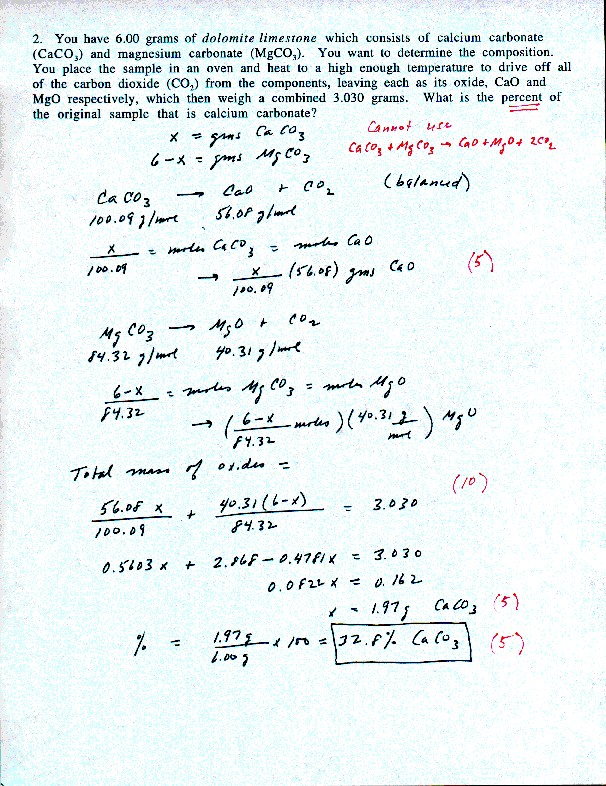 2. You have 6.00 grams of dolomite limestone which consists of calcium carbonate
(CaCO₃) and magnesium carbonate (MgCO₃). You want to determine the composition.
You place the sample in an oven and heat to a high enough temperature to drive off all
of the carbon dioxide (CO₂) from the components, leaving each as its oxide, CaO and
MgO respectively, which then weigh a combined 3.030 grams. What is the percent of
the original sample that is calcium carbonate?
x = gms CaCO₃
Cannot use
6-x = gms MgCO₃
CaCO₃ + MgCO₃ → CaO + MgO + 2CO₂
CaCO₃ → CaO + CO₂ (balanced)
100.09 g/mol 56.08 g/mol
x/100.09 = moles CaCO₃ = moles CaO
→ x/100.09 (56.08) gms CaO (5)
MgCO₃ → MgO + CO₂
84.32 g/mol 40.31 g/mol
6-x/84.32 = moles MgCO₃ = moles MgO
→ (6-x/84.32 moles)(40.31 g/mol) MgO
Total mass of oxides =
(10)
56.08 x/100.09 + 40.31(6-x)/84.32 = 3.030
0.5603 x + 2.868 - 0.4781x = 3.030
0.0822 x = 0.162
x = 1.97g CaCO₃ (5)
% = 1.97g/6.00g x 100 = 32.8% CaCO₃ (5)